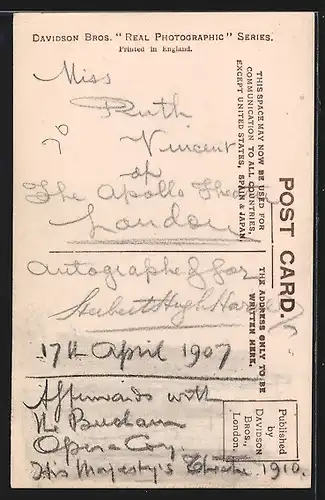 DAVIDSON BROS. "REAL PHOTOGRAPHIC" SERIES.
Printed in England.
Miss
Ruth
Vincent
of
The Apollo Theatre
London
Autographed for
Herbert Hugh
17th April 1907
Afterwards with
the Beecham
Opera Coy.
His Majesty's Theatre 1910.
THIS SPACE MAY NOW BE USED FOR
COMMUNICATION TO ALL COUNTRIES,
EXCEPT UNITED STATES, SPAIN & JAPAN
POST CARD.
THE ADDRESS ONLY TO BE
WRITTEN HERE.
Published
by
DAVIDSON
BROS.,
London.